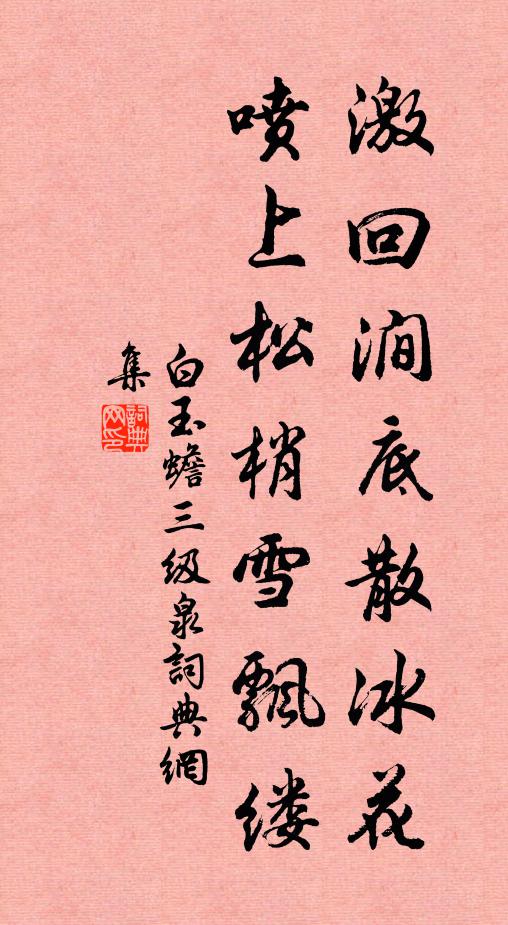 激回涧底散冰花
喷上松梢雪飘缕
白玉蟾三级泉詞典網
集
詞典网印